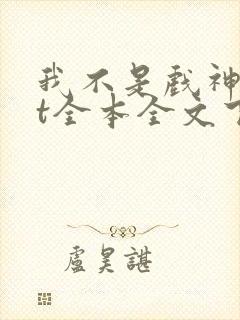 我不是戏神
t全本全文
盧昊諶